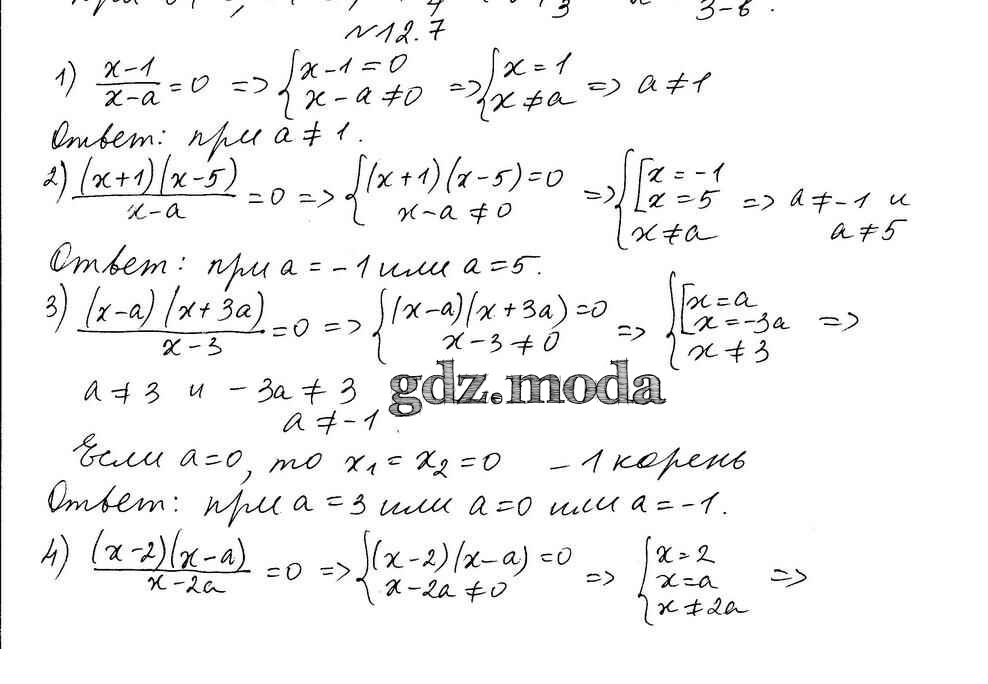 3-в.
№12.7
1) x-1/x-a = 0 => {x-1=0 x-a≠0 => {x=1 x≠a => a≠1
Ответ: при a≠1.
2) (x+1)(x-5)/x-a = 0 => {(x+1)(x-5)=0 x-a≠0 => {[x=-1 x=5 x≠a => a≠-1 и a≠5
Ответ: при a=-1 или a=5.
3) (x-a)(x+3a)/x-3 = 0 => {(x-a)(x+3a)=0 x-3≠0 => {[x=a x=-3a x≠3 =>
a≠3 и -3a≠3
a≠-1
gdz.moda
Если a=0, то x₁=x₂=0 - 1 корень
Ответ: при a=3 или a=0 или a=-1.
4) (x-2)(x-a)/x-2a = 0 => {(x-2)(x-a)=0 x-2a≠0 => {x=2 x=a x≠2a =>